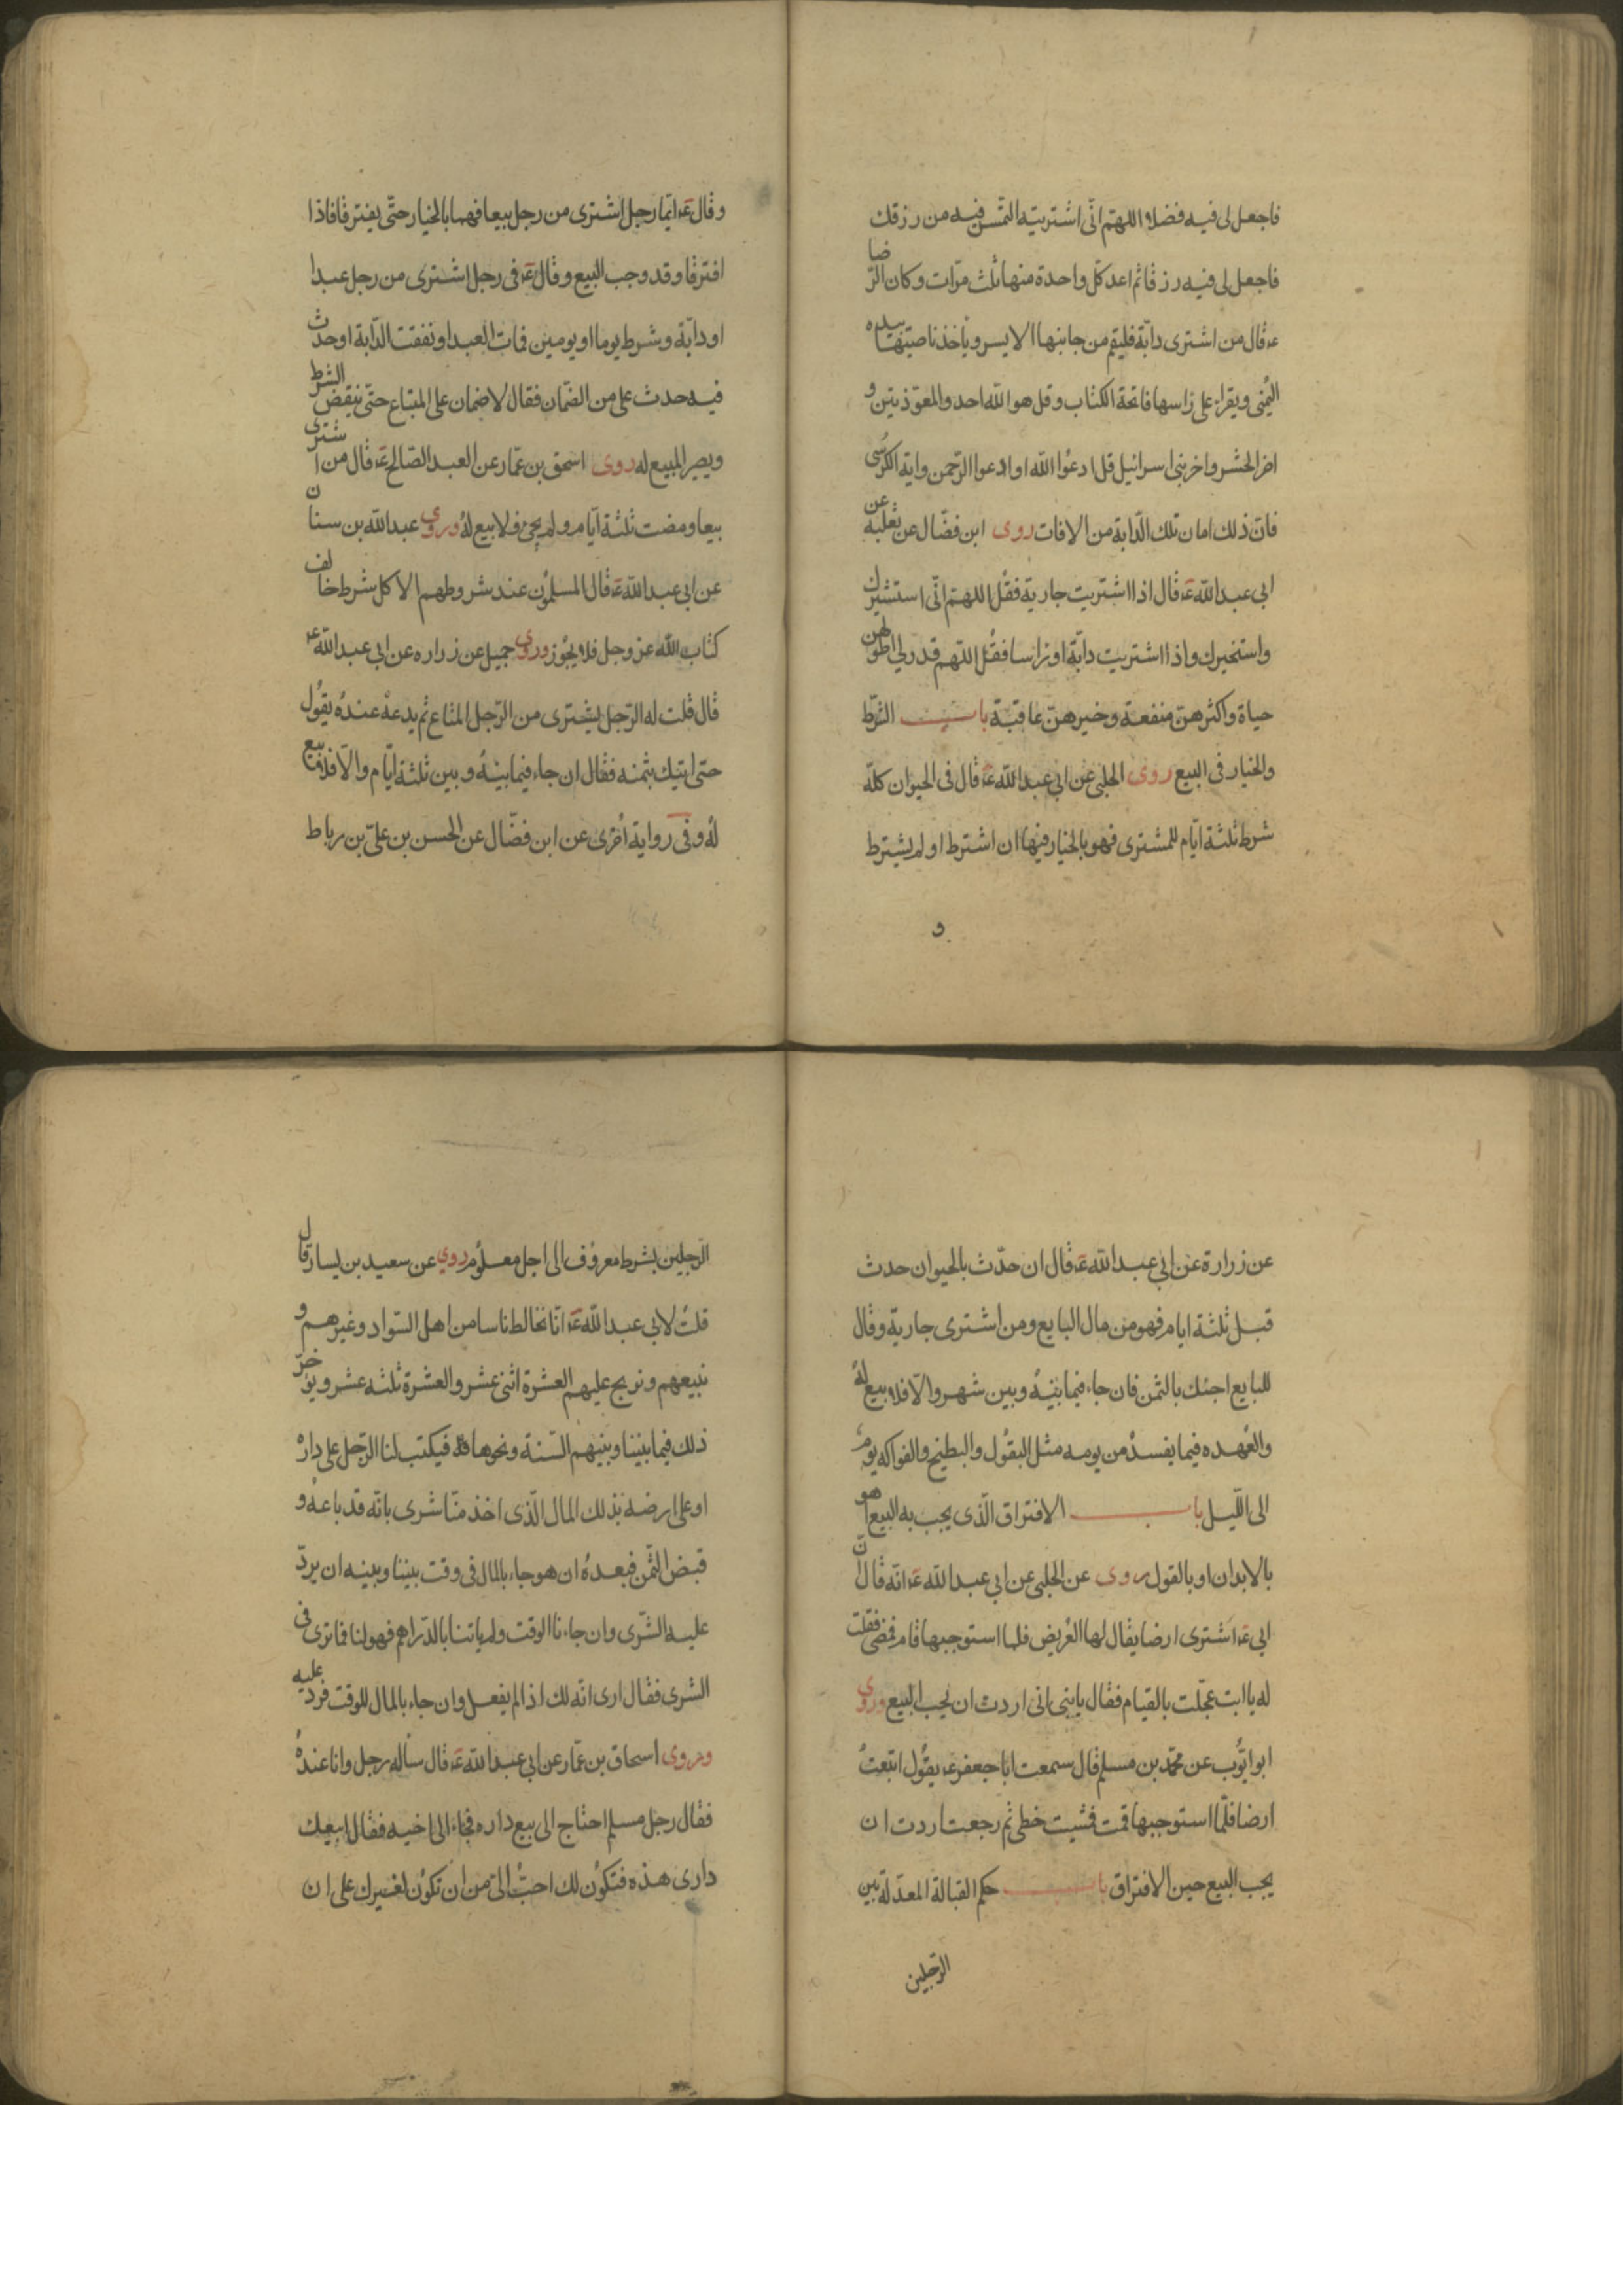 فاجعل لى فيه فضلا اللهم انّى اشتريته التمس فيه من رزقك
فاجعل لى فيه رزقا ثم اعد كل واحدة منها ثلث مرّات وكان الرّضا
ع قال من اشترى دابّة فليقم من جانبها الايسر ويأخذ ناصيتها بيده
اليُمنى ويقراء على راسها فاتحة الكتاب وقل هو الله احد والمعوّذتين و
اخر الحشر واخر بنى اسرائيل قل ادعُوا الله او ادعوا الرّحمن واية الكرسُى
فانّ ذلك امان تلك الدّابة من الافات روى ابن فضّال عن ثعلبة عن
ابى عبد الله ع قال اذا اشتريت جارية فقُل اللهمّ انّى استشيرك
واستخيرك واذا اشتريت دابّة او راسا فقُل اللّهم قدر لى اطولهن
حياة واكثرهنّ منفعة وخيرهنّ عاقبة باب الشّرط
والخيار فى البيع روى الحلبى عن ابى عبد الله ع قال فى الحيوان كلّه
شرط ثلثة ايّام للمشترى فهو بالخيار فيها ان اشترط او لم يشترط
و
وقال ع ايّما رجل اشترى من رجل بيعا فهما بالخيار حتّى يفترقا فاذا
افترقا وقد وجب البيع وقال ع فى رجل اشترى من رجل عبدا
او دابّة وشرط يوما او يومين فمات العبد او نفقت الدّابة او حدث
فيه حدث على من الضّمان فقال لا ضمان على المبتاع حتّى ينقض الشرط
ويصير المبيع له روى اسحق بن عمّار عن العبد الصّالح ع قال من اشترى
بيعا ومضت ثلثة ايّام ولم يجئ فلا بيع لهُ وروى عبد الله بن سنان
عن ابى عبد الله ع قال المسلمُون عند شروطهم الا كل شرط خالف
كتاب الله عز وجل فلا يجُوز وروى جميل عن زراره عن ابى عبد الله ع
قال قلت له الرّجل يشترى من الرّجل المتاع ثم يدعهُ عندهُ يقُول
حتى ايتيك بثمنه فقال ان جاء فيما بينهُ وبين ثلثة ايّام والّا فلا بيع
لهُ وفى رواية اُخرى عن ابن فضّال عن الحسن بن علىّ بن رباط
عن زرارة عن ابى عبد الله ع قال ان حدّث بالحيوان حدث
قبل ثلثة ايام فهو من مال البايع ومن اشترى جارية وقال
للبايع اجئك بالثمن فان جاء فيما بينهُ وبين شهر والّا فلا بيع لهُ
والعُهده فيما يفسدُ من يومه مثل البقُول والبطيخ والفواكه يومٌ
الى اللّيل باب الافتراق الّذى يجب به البيع اهو
بالابدان او بالقول روى عن الحلبى عن ابى عبد الله ع انّه قال انّ
ابى ع اشترى ارضا يقال لها العُريض فلما استوجبها قام فمضى فقلت
له يا ابت عجّلت بالقيام فقال يا بنى انى اردت ان يجب البيع وروى
ابو ايّوُب عن محمّد بن مسلم قال سمعت ابا جعفر ع يقُول ابتعتُ
ارضا فلّما استوجبها قمت فمشيت خطى ثم رجعت اردت ان
يجب البيع حين الافتراق باب حكم القبالة المعدّلة بين
الرّجلين
الرّجلين بشرط معرُوف الى اجل معلُوم روى عن سعيد بن يسار قال
قلتُ لابى عبد الله ع انّا نخالط ناسا من اهل السّواد وغيرهم و
نبيعهم ونربح عليهم العشرة اثنى عشر والعشرة ثلثه عشر ويؤخّر
ذلك فيما بيننا وبينهم السّنة ونحوها فيكتب لنا الرّجل على داره
او على ارضه بذلك المال الّذى اخذ منّا شرى بانّه قد باعهُ و
قبض الثّمن فبعدهُ ان هو جاء بالمال فى وقت بيننا وبينه ان يردّ
عليه الشّرى وان جاءنا الوقت ولم ياتنا بالدّراهم فهو لنا فما ترى فى
الشرى فقال ارى انّه لك اذا لم يفعل وان جاء بالمال للوقت فردّ عليه
وروى اسحاق بن عمّار عن ابى عبد الله ع قال سأله رجل وانا عندهُ
فقال رجل مسلم احتاج الى بيع داره فجاء الى اخيه فقال ابيعك
دارى هذه فتكوُن لك احبّ الىّ من ان تكوُن لغيرك على ان